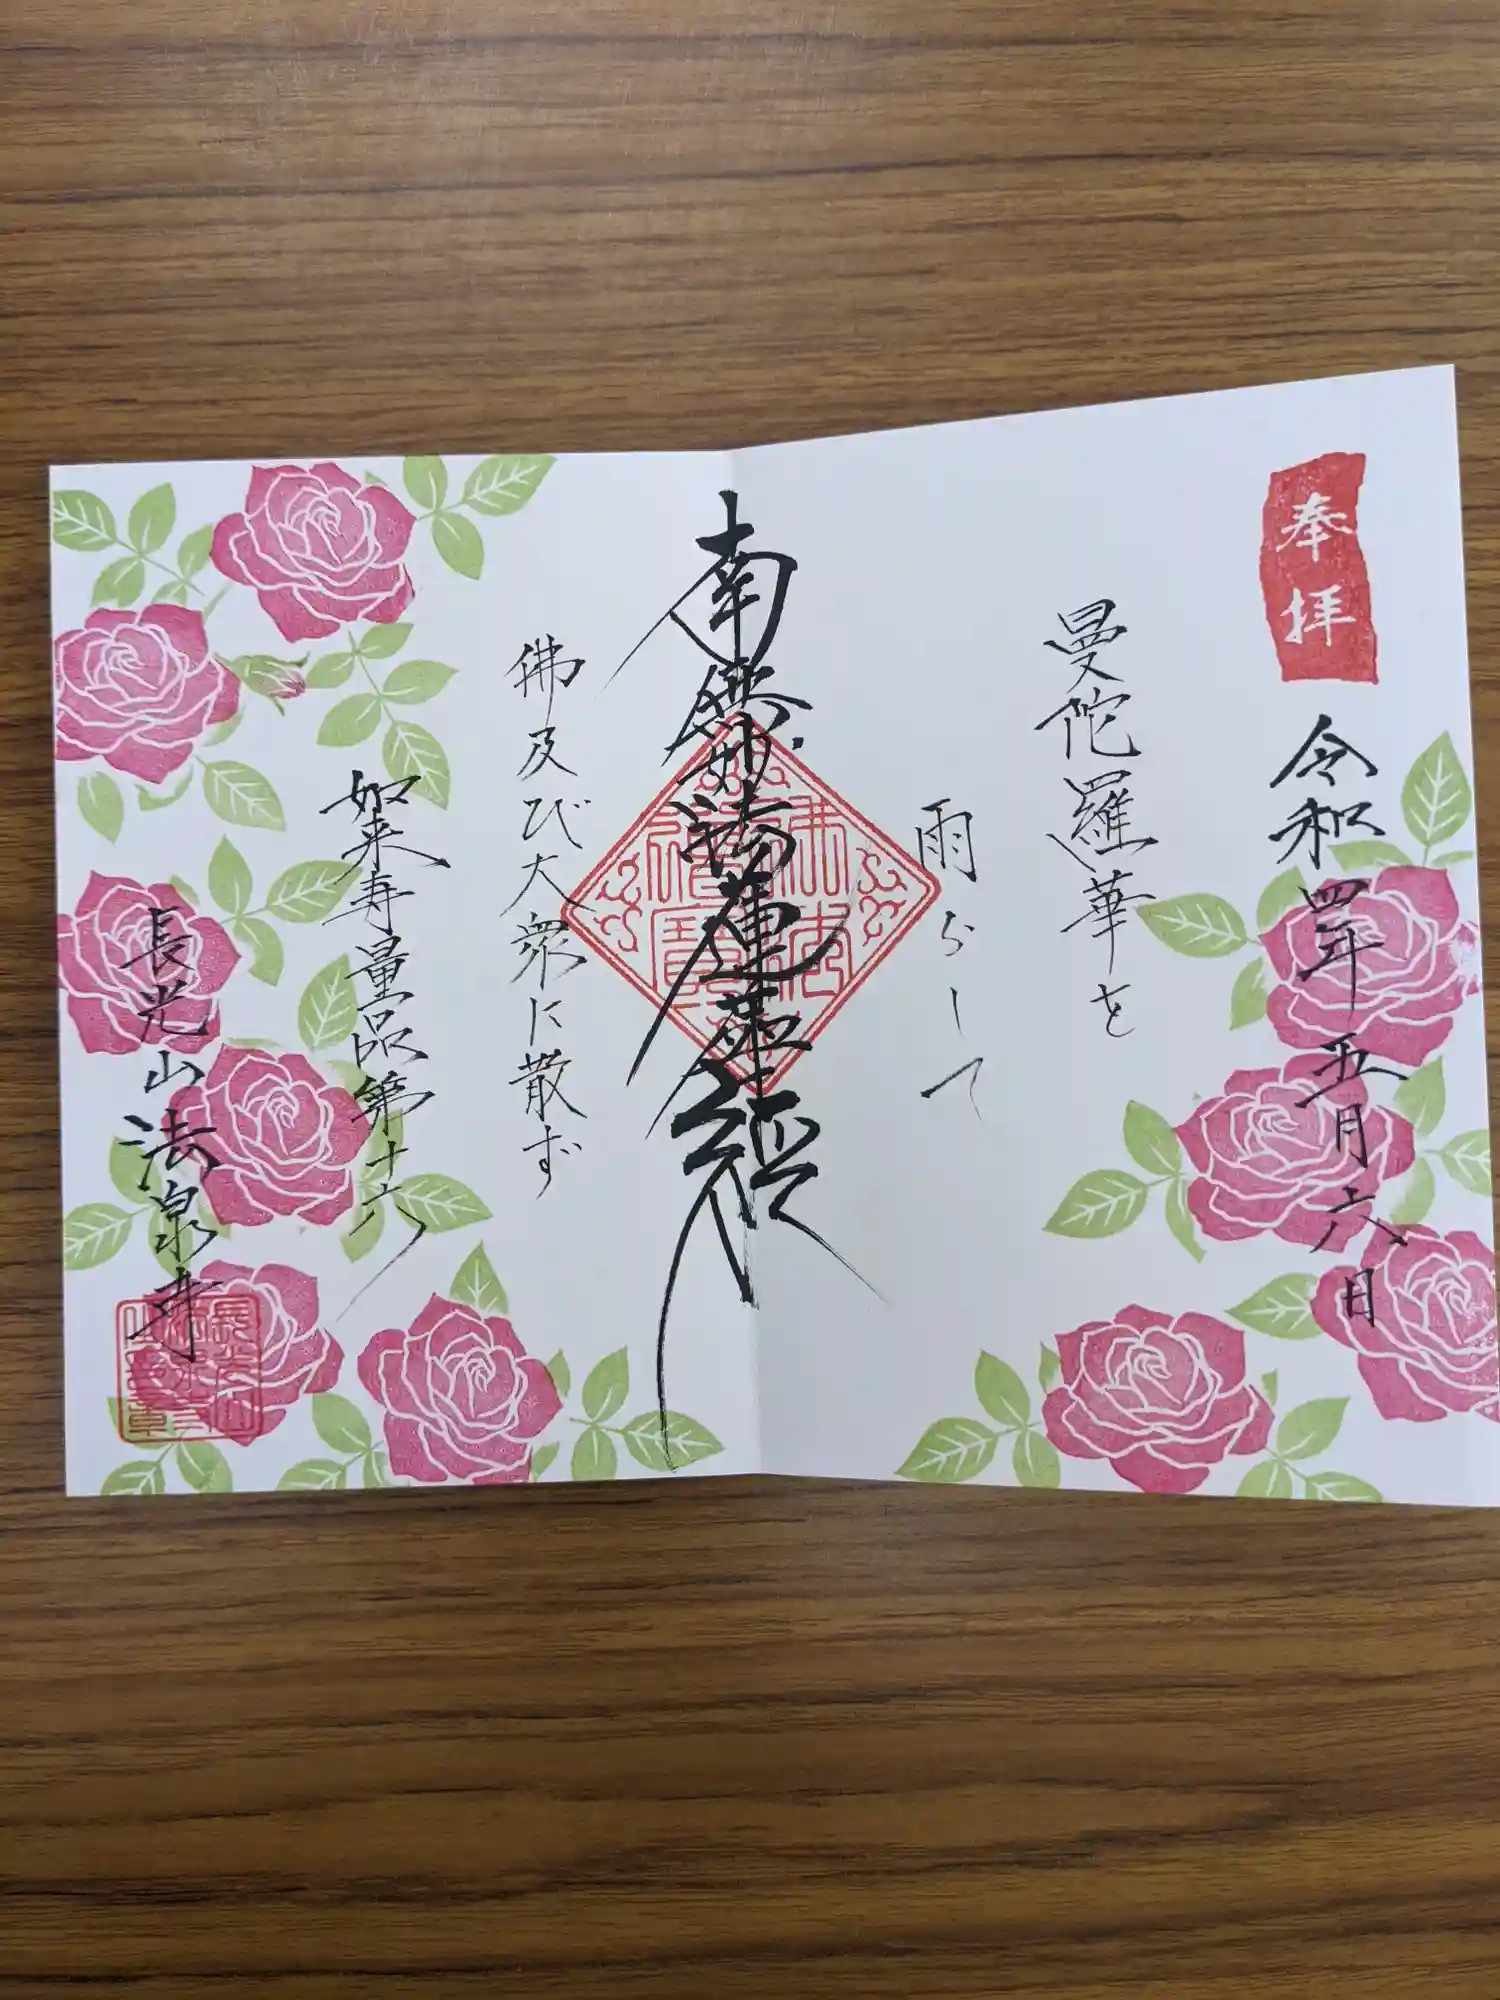 奉拝
令和四年五月六日
曼陀羅華を
雨らして
南無妙法蓮華経
佛及び大衆に散ず
如来寿量品第十六
長光山法泉寺